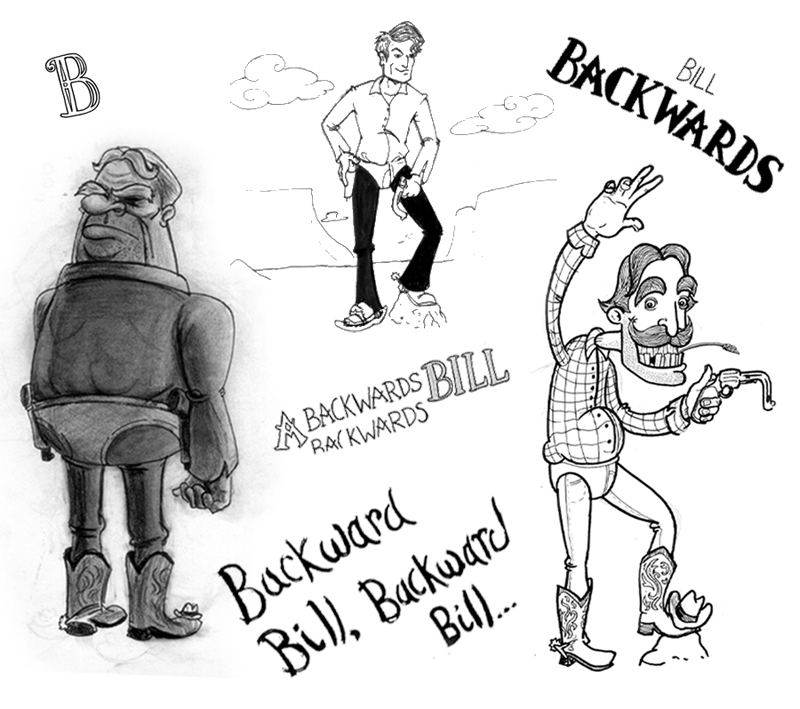 B
BILL
BACKWARDS
A BACKWARDS BILL
BACKWARDS
Backward
Bill, Backward
Bill...